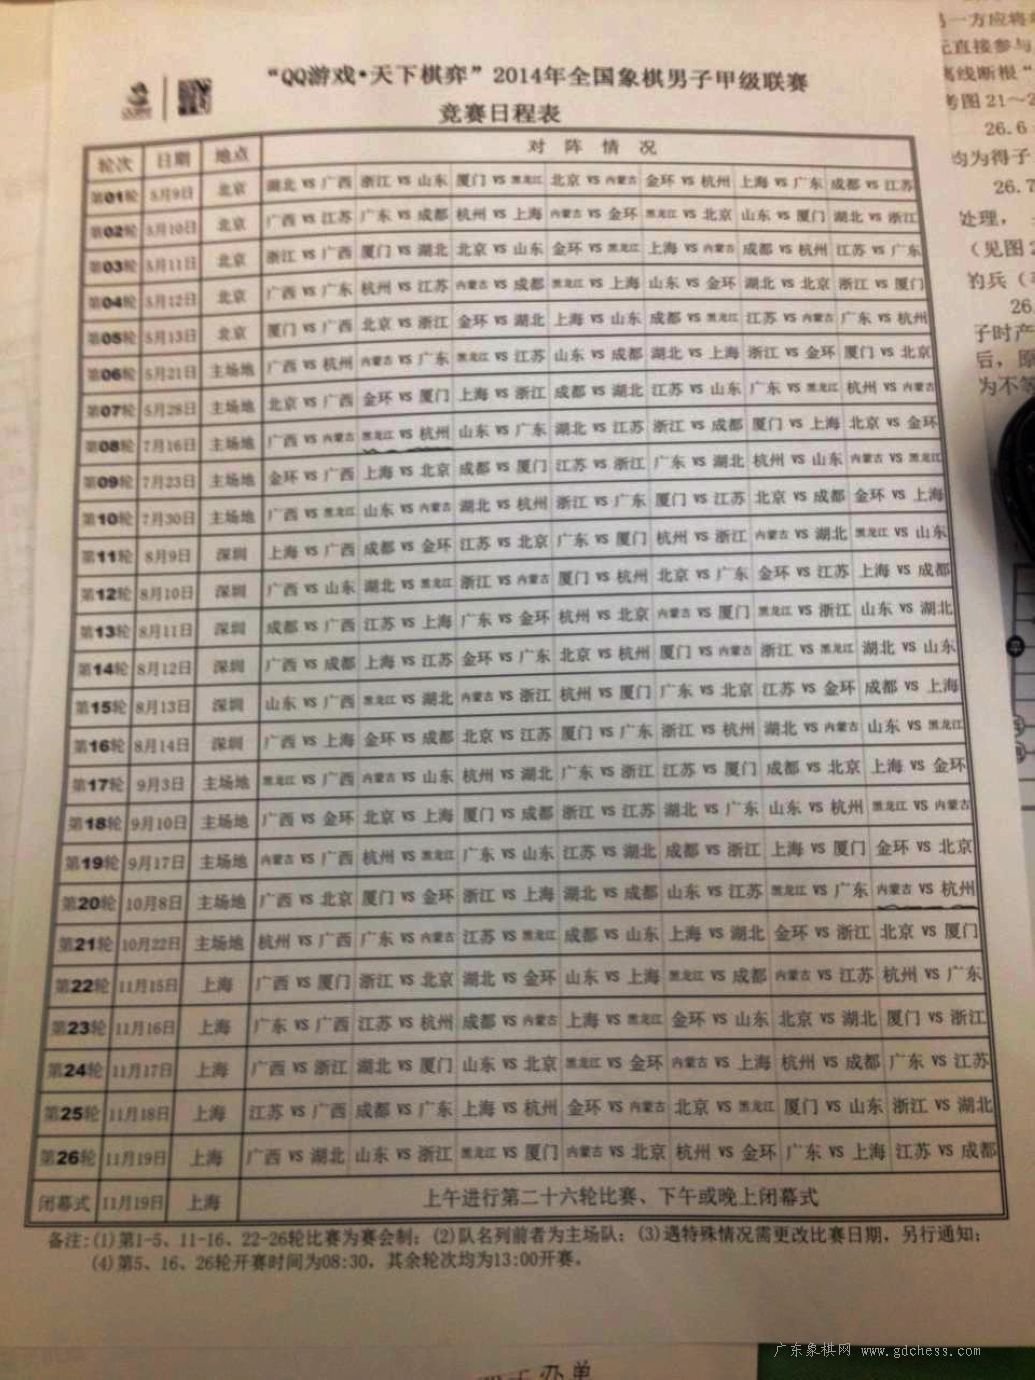 “QQ游戏·天下棋弈”2014年全国象棋男子甲级联赛
竞赛日程表
轮次 日期 地点 对阵情况
第01轮 5月9日 北京 湖北 VS 广西 浙江 VS 山东 厦门 VS 黑龙江 北京 VS 内蒙古 金环 VS 杭州 上海 VS 广东 成都 VS 江苏
第02轮 5月10日 北京 广西 VS 江苏 广东 VS 成都 杭州 VS 上海 内蒙古 VS 金环 黑龙江 VS 北京 山东 VS 厦门 湖北 VS 浙江
第03轮 5月11日 北京 浙江 VS 广西 厦门 VS 湖北 北京 VS 山东 金环 VS 黑龙江 上海 VS 内蒙古 成都 VS 杭州 江苏 VS 广东
第04轮 5月12日 北京 广西 VS 广东 杭州 VS 江苏 内蒙古 VS 成都 黑龙江 VS 上海 山东 VS 金环 湖北 VS 北京 浙江 VS 厦门
第05轮 5月13日 北京 厦门 VS 广西 北京 VS 浙江 金环 VS 湖北 上海 VS 山东 成都 VS 黑龙江 江苏 VS 内蒙古 广东 VS 杭州
第06轮 5月21日 主场地 广西 VS 杭州 内蒙古 VS 广东 黑龙江 VS 江苏 山东 VS 成都 湖北 VS 上海 浙江 VS 金环 厦门 VS 北京
第07轮 5月28日 主场地 北京 VS 广西 金环 VS 厦门 上海 VS 浙江 成都 VS 湖北 江苏 VS 山东 广东 VS 黑龙江 杭州 VS 内蒙古
第08轮 7月16日 主场地 广西 VS 内蒙古 黑龙江 VS 杭州 山东 VS 广东 湖北 VS 江苏 浙江 VS 成都 厦门 VS 上海 北京 VS 金环
第09轮 7月23日 主场地 金环 VS 广西 上海 VS 北京 成都 VS 厦门 江苏 VS 浙江 广东 VS 湖北 杭州 VS 山东 内蒙古 VS 黑龙江
第10轮 7月30日 主场地 广西 VS 黑龙江 山东 VS 内蒙古 湖北 VS 杭州 浙江 VS 广东 厦门 VS 江苏 北京 VS 成都 金环 VS 上海
第11轮 8月9日 深圳 上海 VS 广西 成都 VS 金环 江苏 VS 北京 广东 VS 厦门 杭州 VS 浙江 内蒙古 VS 湖北 黑龙江 VS 山东
第12轮 8月10日 深圳 广西 VS 山东 湖北 VS 黑龙江 浙江 VS 内蒙古 厦门 VS 杭州 北京 VS 广东 金环 VS 江苏 上海 VS 成都
第13轮 8月11日 深圳 成都 VS 广西 江苏 VS 上海 广东 VS 金环 杭州 VS 北京 内蒙古 VS 厦门 黑龙江 VS 浙江 山东 VS 湖北
第14轮 8月12日 深圳 广西 VS 成都 上海 VS 江苏 金环 VS 广东 北京 VS 杭州 厦门 VS 内蒙古 浙江 VS 黑龙江 湖北 VS 山东
第15轮 8月13日 深圳 山东 VS 广西 黑龙江 VS 湖北 内蒙古 VS 浙江 杭州 VS 厦门 广东 VS 北京 江苏 VS 金环 成都 VS 上海
第16轮 8月14日 深圳 广西 VS 上海 金环 VS 成都 北京 VS 江苏 厦门 VS 广东 浙江 VS 杭州 湖北 VS 内蒙古 山东 VS 黑龙江
第17轮 9月3日 主场地 黑龙江 VS 广西 内蒙古 VS 山东 杭州 VS 湖北 广东 VS 浙江 江苏 VS 厦门 成都 VS 北京 上海 VS 金环
第18轮 9月10日 主场地 广西 VS 金环 北京 VS 上海 厦门 VS 成都 浙江 VS 江苏 湖北 VS 广东 山东 VS 杭州 黑龙江 VS 内蒙古
第19轮 9月17日 主场地 内蒙古 VS 广西 杭州 VS 黑龙江 广东 VS 山东 江苏 VS 湖北 成都 VS 浙江 上海 VS 厦门 金环 VS 北京
第20轮 10月8日 主场地 广西 VS 北京 厦门 VS 金环 浙江 VS 上海 湖北 VS 成都 山东 VS 江苏 黑龙江 VS 广东 内蒙古 VS 杭州
第21轮 10月22日 主场地 杭州 VS 广西 广东 VS 内蒙古 江苏 VS 黑龙江 成都 VS 山东 上海 VS 湖北 金环 VS 浙江 北京 VS 厦门
第22轮 11月15日 上海 广西 VS 厦门 浙江 VS 北京 湖北 VS 金环 山东 VS 上海 黑龙江 VS 成都 内蒙古 VS 江苏 杭州 VS 广东
第23轮 11月16日 上海 广东 VS 广西 江苏 VS 杭州 成都 VS 内蒙古 上海 VS 黑龙江 金环 VS 山东 北京 VS 湖北 厦门 VS 浙江
第24轮 11月17日 上海 广西 VS 浙江 湖北 VS 厦门 山东 VS 北京 黑龙江 VS 金环 内蒙古 VS 上海 杭州 VS 成都 广东 VS 江苏
第25轮 11月18日 上海 江苏 VS 广西 成都 VS 广东 上海 VS 杭州 金环 VS 内蒙古 北京 VS 黑龙江 厦门 VS 山东 浙江 VS 湖北
第26轮 11月19日 上海 广西 VS 湖北 山东 VS 浙江 黑龙江 VS 厦门 内蒙古 VS 北京 杭州 VS 金环 广东 VS 上海 江苏 VS 成都
闭幕式 11月19日 上海 上午进行第二十六轮比赛、下午或晚上闭幕式
备注:(1)第1-5、11-16、22-26轮比赛为赛会制;(2)队名列前者为主场队;(3)遇特殊情况需更改比赛日期，另行通知;
(4)第5、16、26轮开赛时间为08:30，其余轮次均为13:00开赛。
一方应将
直接参与
离线断根“
考图 21～2
26.6
均为得子
26.7
处理，
（见图 2
的兵（
26.
子时产
后，原
为不等
办单
广东象棋网 www.gdchess.com